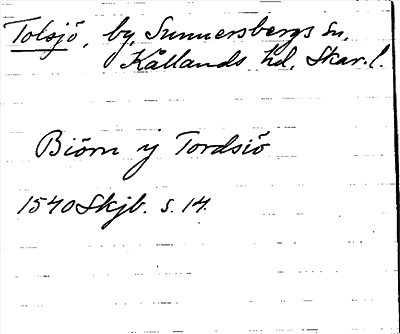 Tolsjö, by, Sunnersbergs sn,
Kållands hd, Skar. l.
Biörn y Tordsiö
1540 Skjb. s. 14.